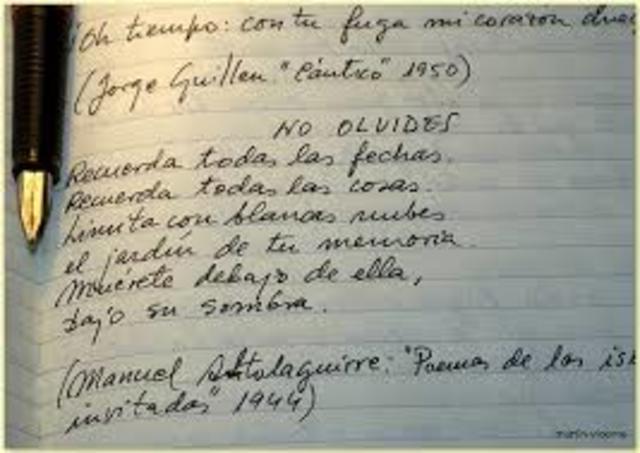 ¡Oh tiempo: con tu fuga mi corazon
(Jorge Guillen "Cántico" 1950)
NO OLVIDES
Recuerda todas las fechas.
Recuerda todas las cosas.
Limita con blancas nubes
el jardín de tu memoria.
Muérete debajo de ella,
bajo su sombra.
(Manuel Altolaguirre: "Poemas de las
invitadas" 1944)